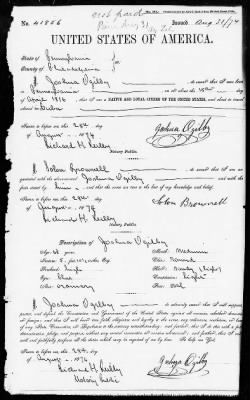 No. 41556
Issued Aug 31/74
UNITED STATES OF AMERICA.
State of Pennsylvania
County of
I Joshua Ogilby do swear that I was born
in Pennsylvania on or about the day
of 1816, that I am a NATIVE AND LOYAL CITIZEN OF THE UNITED STATES, and about to travel
Sworn to before me this 28th day
of August 1874
Joshua Ogilby
Notary Public.
I Brownell do swear that I am
acquainted with the above named Joshua Ogilby and with the facts
stated by him, and that the same are true to the best of my knowledge and belief.
Sworn to before me this 28th day
of August 1874
Brownell
Notary Public.
Description of Joshua Ogilby
Age: 58 years
Mouth: medium
Stature: 5 feet inches, Eng.
Chin: round
Forehead: high
Hair:
Eyes: blue
Complexion: light
Nose: ordinary
Face: oval
I Joshua Ogilby do solemnly swear that I will support,
protect, and defend the Constitution and Government of the United States against all enemies, whether domestic
or foreign; and that I will bear true faith, allegiance, and loyalty to the same, any ordinance, resolution, or law
of any State, Convention, or Legislature to the contrary notwithstanding; and further, that I do this with a full
determination, pledge, and purpose, without any mental reservation or evasion whatsoever; and further, that I will
well and faithfully perform all the duties which may be required of me by law. So help me God.
Sworn to before me this 28th day
of August 1874
Joshua Ogilby
Notary Public